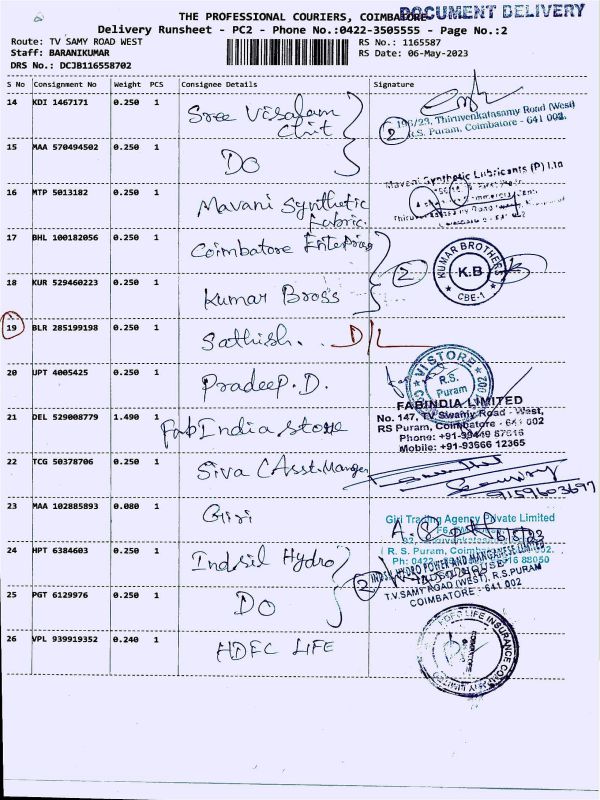 THE PROFESSIONAL COURIERS, COIMBATORE
DOCUMENT DELIVERY
Delivery Runsheet - PC2 - Phone No.:0422-3505555 - Page No.:2
Route: TV SAMY ROAD WEST
RS No.: 1165587
Staff: BARANIKUMAR
RS Date: 06-May-2023
DRS No.: DCJB116558702
S No Consignment No Weight PCS Consignee Details Signature
14 KDI 1467171 0.250 1 Sree Visalam Chit
2
196/23, Thiruvenkatasamy Road (West)
R.S. Puram, Coimbatore - 641 002.
15 MAA 570494502 0.250 1 Do
Mavani Synthetic Lubricants (P) Ltd
16 MTP 5013182 0.250 1 Mavani Synthetic
Fabric.
17 BHL 100182056 0.250 1 Coimbatore Enterprises
2
KUMAR BROTHERS
K.B
CBE-1
18 KUR 529460223 0.250 1 Kumar Bross
19 BLR 285199198 0.250 1 Sathish. D/L
20 UPT 4005425 0.250 1 Pradeep.D.
R.S.
Puram
FABINDIA LIMITED
21 DEL 529008779 1.490 1 FabIndia store
No. 147, TV Swamy Road - West,
RS Puram, Coimbatore - 641 002
Phone: +91-99449 87616
Mobile: +91-93666 12365
22 TCG 50378706 0.250 1 Siva (Asst.Manger
9159603697
23 MAA 102885893 0.080 1 Giri
Giri Trading Agency Private Limited
R. S. Puram,
24 HPT 6384603 0.250 1 Indsil Hydro
2
INDSIL HYDRO POWER AND MANGANESE LIMITED
T.V.SAMY ROAD (WEST), R.S.PURAM
COIMBATORE - 641 002
25 PGT 6129976 0.250 1 Do
26 VPL 939919352 0.240 1 HDFC LIFE
HDFC LIFE INSURANCE COMPANY LIMITED